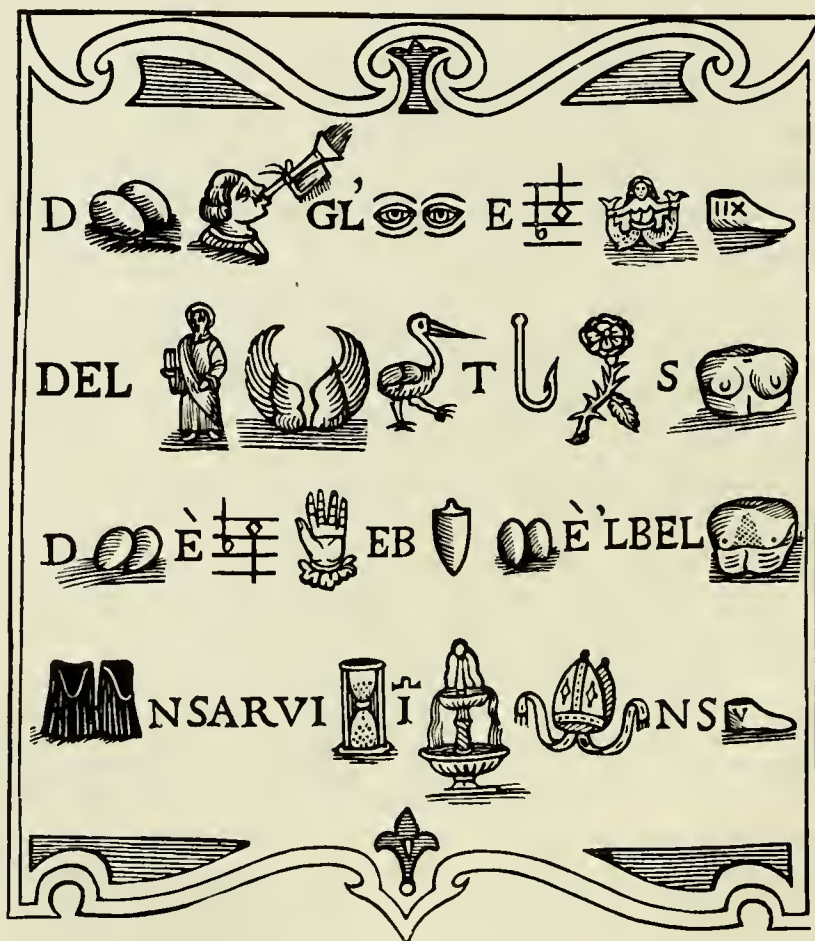 D GL' E IIX
DEL T S
D È EB È'LBEL
NSARVI I NS V